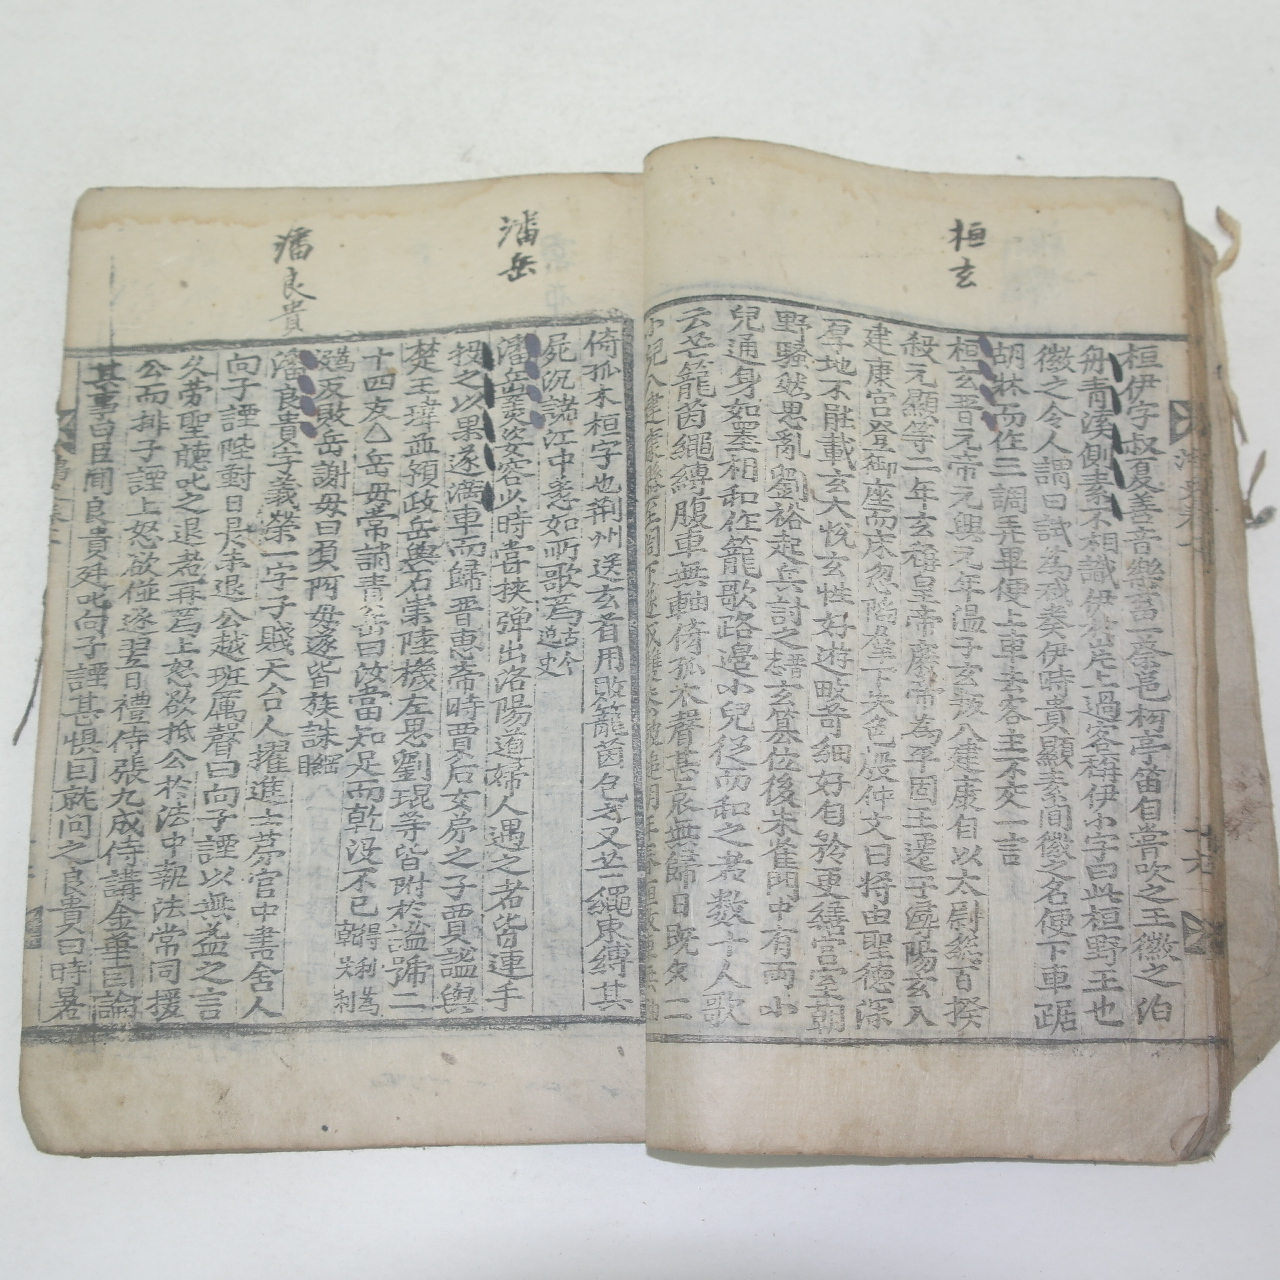 桓玄
桓伊字叔夏善音樂蓄一蔡邕柯亭笛自嘗吹之王徽之泊
舟青溪側素不相識伊於岸上過客稱伊小字曰此桓野王也
徽之令人謂曰試為我奏伊時貴顯素聞徽之名便下車踞
胡床而作三調弄畢便上車去客主不交一言
桓玄晉元帝元興元年溫子玄
入建康自以太尉總百揆
殺元顯等二年玄稱皇帝廢帝為平固王遷于潯陽玄入
建康宮登御座而床忽陷
下失色殷仲文曰將由聖德深
厚地不能載玄大悅玄性好遊畋奇細好自矜更繕宮室朝
野騷然思亂劉裕起兵討之
玄篡位後朱雀門中有兩小
兒通身如墨相和作籠歌路邊小兒從而和之者數十人歌
云芒籠茵繩縛腹車無軸倚孤木聲甚哀無歸日旣夕二
潘岳
潘良貴
倚孤木桓字也荊州送玄首用敗籠茵包之又芒繩束縛其
屍沉諸江中悉如所歌焉古今
潘岳美姿容少時嘗挾弹出洛陽道婦人遇之者皆連手
投之以果遂满車而歸晋惠帝時賈后女弟之子賈謐與
楚王瑋並預政岳與石崇陸機左思劉琨等皆附於謐號二
十四友乙岳母常誚責岳曰汝當知足而乾沒不已得利為乾失利
為
及敗岳謝母曰負阿母遂皆族誅綱目
潘良貴字義榮一字子賤天台人擢進士第官中書舍人
向子諲陛對日昃未退公越班厲聲曰向子諲以無益之言
久劳聖聽叱之退者再爲上怒欲抵公於法中執法常同援
公而排子諲上怒欲倂逐翌日禮侍張九成侍講金華因論
其事白臣間良貴廷叱向子諲甚懼因就问之良貴曰時暑